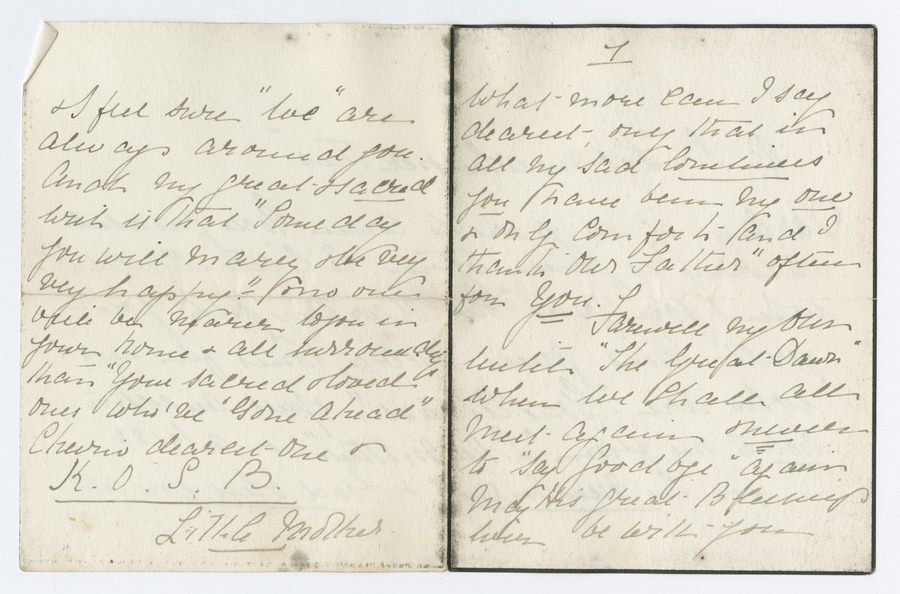 & I feel sure "we" are
always around you.
And my great & sacred
wish is that "Someday
you will marry & be very
very happy". & no one
will be nearer to you in
your home & all surroundings
than "your sacred & loved"
ones who've "Gone Ahead"
Cheerio dearest one &
K. O. S. B.
Little Mother
7
What more can I say
dearest, only that in
all my sad loneliness
you have been my one
& only comfort (and I
thank Our Father" often
for You. Farewell my Own
until "The Great Dawn"
when we shall all
meet again & never
to "say Good bye" again
May His great Blessings
ever be with you